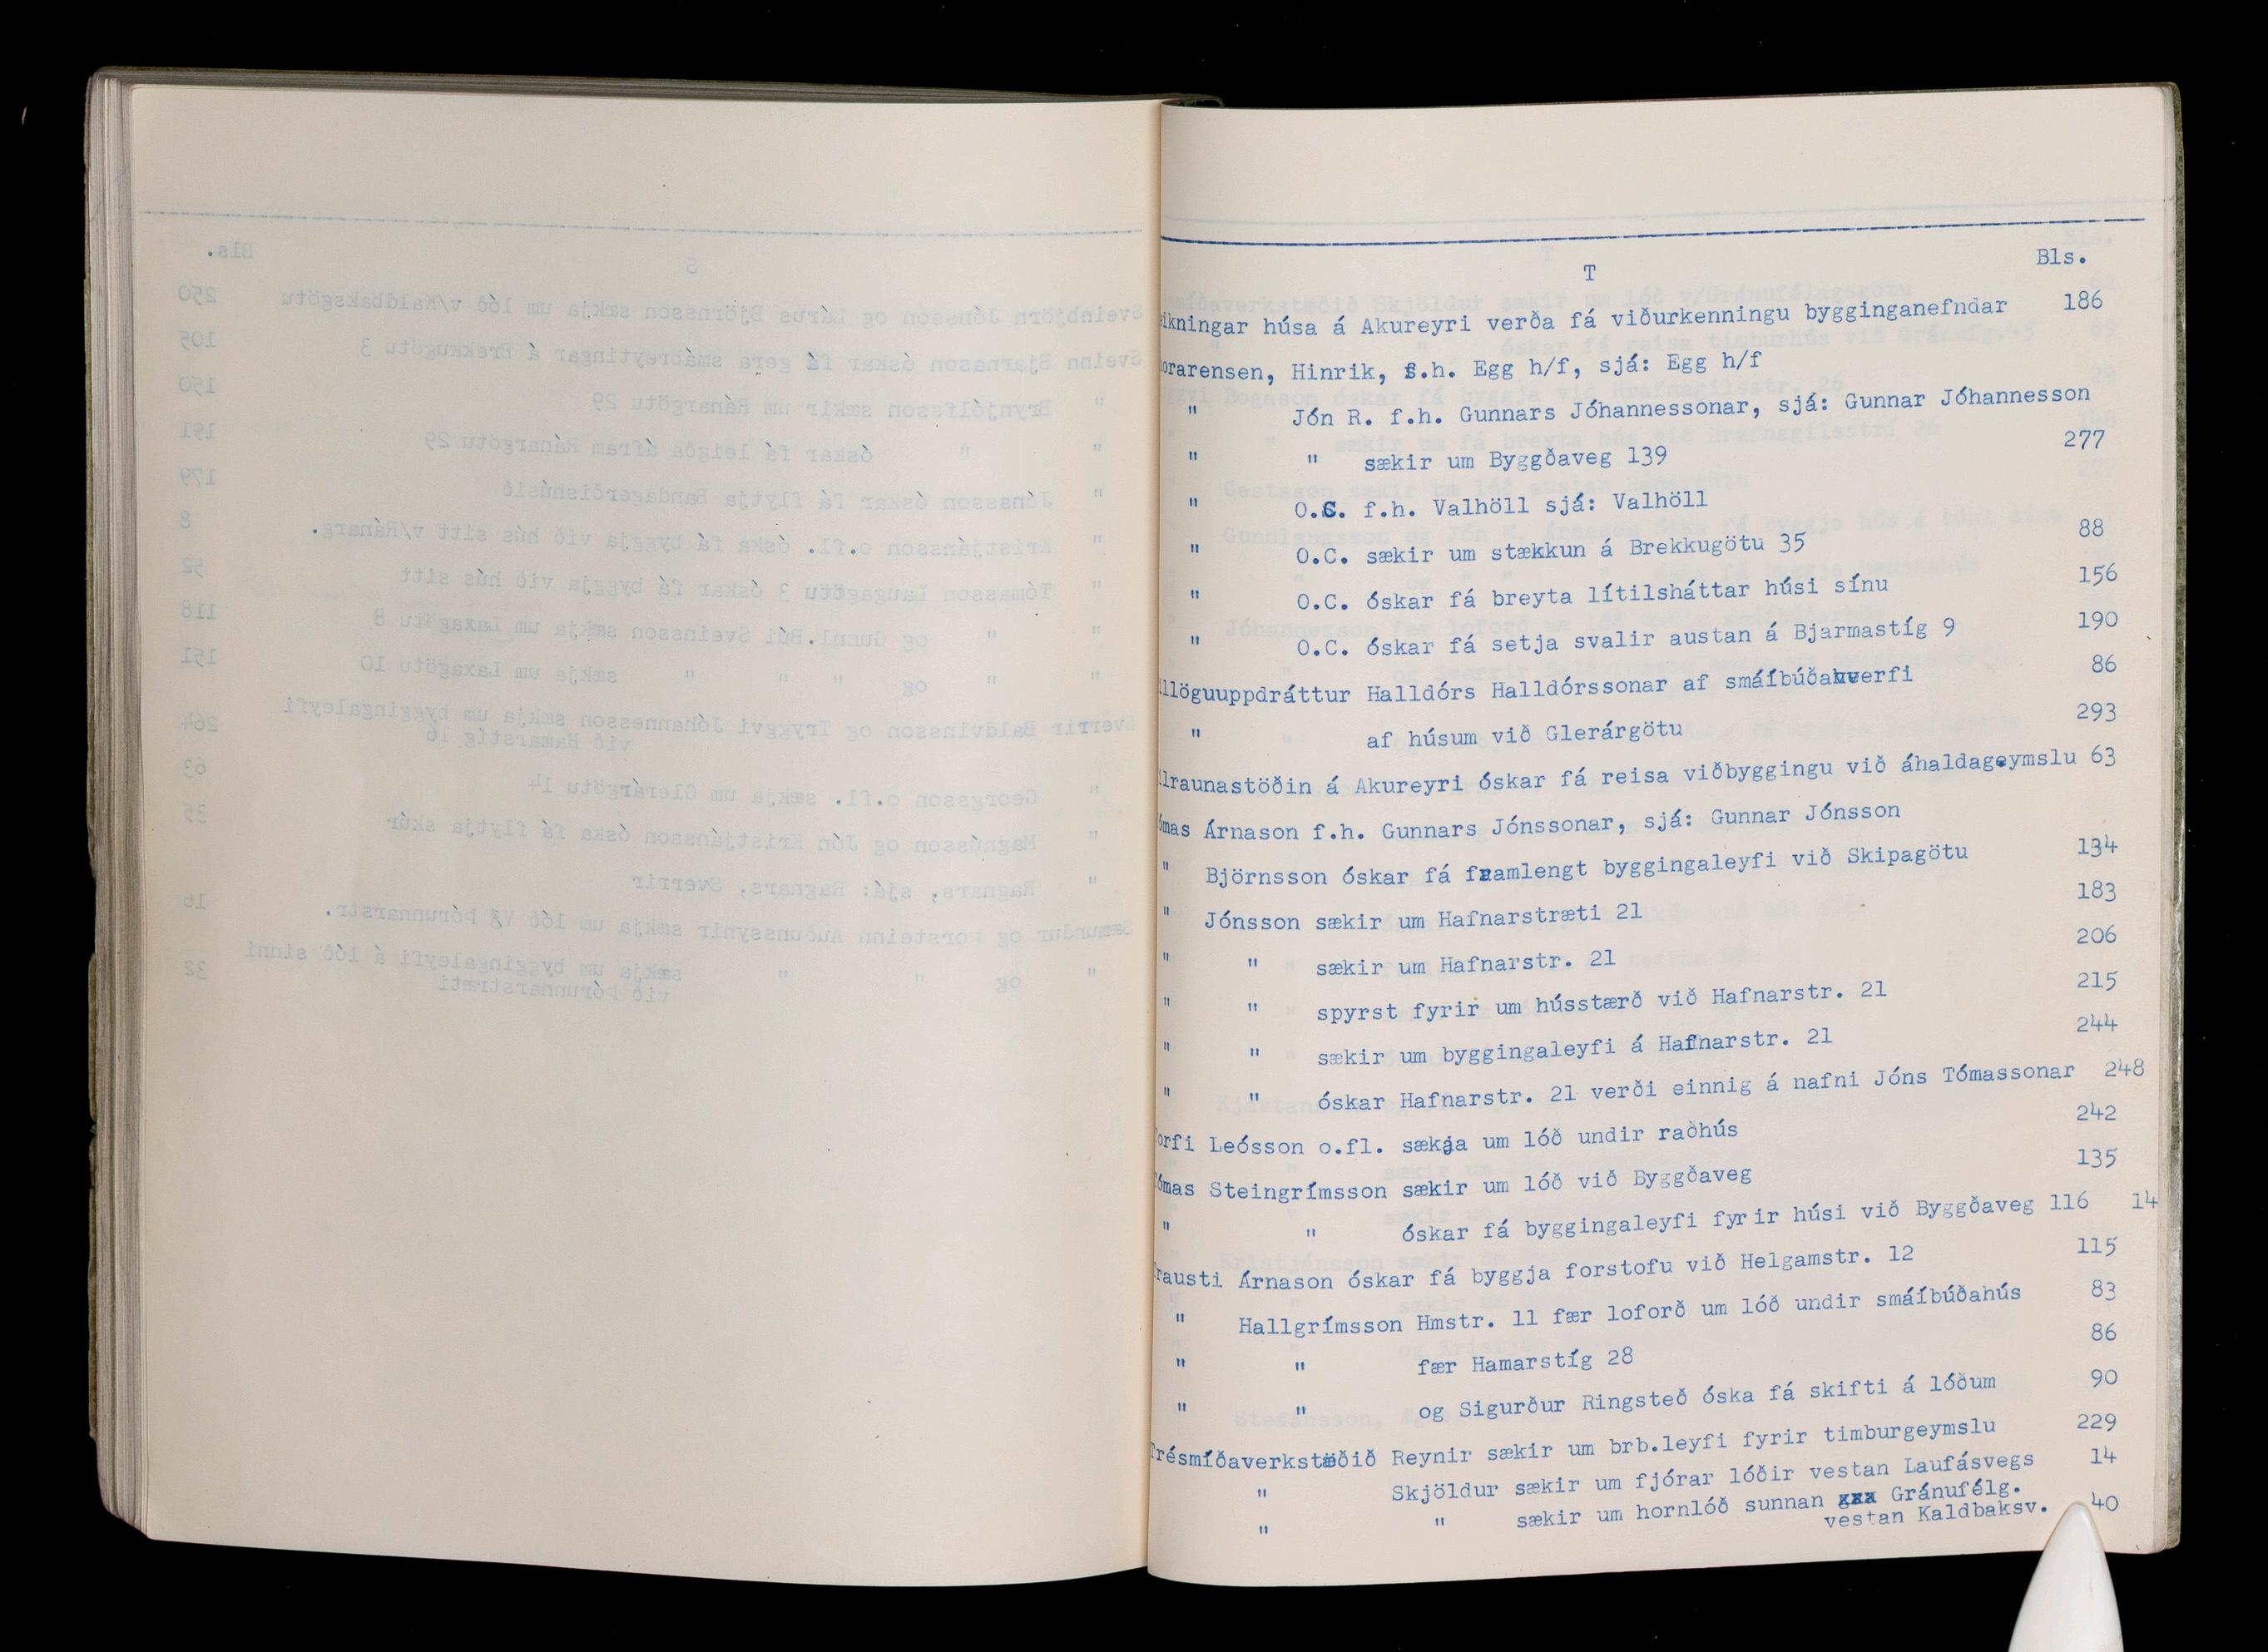 T
Bls.
eikningar húsa á Akureyri verða fá viðurkenningu bygginganefndar 186
orarensen, Hinrik, f.h. Egg h/f, sjá: Egg h/f
" Jón R. f.h. Gunnars Jóhannessonar, sjá: Gunnar Jóhannesson
" " sækir um Byggðaveg 139 277
" O.C. f.h. Valhöll sjá: Valhöll
" O.C. sækir um stækkun á Brekkugötu 35 88
" O.C. óskar fá breyta lítilsháttar húsi sínu 156
" O.C. óskar fá setja svalir austan á Bjarmastíg 9 190
llöguuppdráttur Halldórs Halldórssonar af smáíbúðahverfi 86
" af húsum við Glerárgötu 293
lraunastöðin á Akureyri óskar fá reisa viðbyggingu við áhaldageymslu 63
ómas Árnason f.h. Gunnars Jónssonar, sjá: Gunnar Jónsson
" Björnsson óskar fá framlengt byggingaleyfi við Skipagötu 134
" Jónsson sækir um Hafnarstræti 21 183
" " sækir um Hafnarstr. 21 206
" " spyrst fyrir um hússtærð við Hafnarstr. 21 215
" " sækir um byggingaleyfi á Hafnarstr. 21 244
" " óskar Hafnarstr. 21 verði einnig á nafni Jóns Tómassonar 248
orfi Leósson o.fl. sækja um lóð undir raðhús 242
ómas Steingrímsson sækir um lóð við Byggðaveg 135
" " óskar fá byggingaleyfi fyrir húsi við Byggðaveg 116 14
rausti Árnason óskar fá byggja forstofu við Helgamstr. 12 115
" Hallgrímsson Hmstr. 11 fær loforð um lóð undir smáíbúðahús 83
" " fær Hamarstíg 28 86
" " og Sigurður Ringsteð óska fá skifti á lóðum 90
Trésmíðaverkstæðið Reynir sækir um brb.leyfi fyrir timburgeymslu 229
" Skjöldur sækir um fjórar lóðir vestan Laufásvegs 14
" " sækir um hornlóð sunnan Gránufélg.
vestan Kaldbaksv. 40